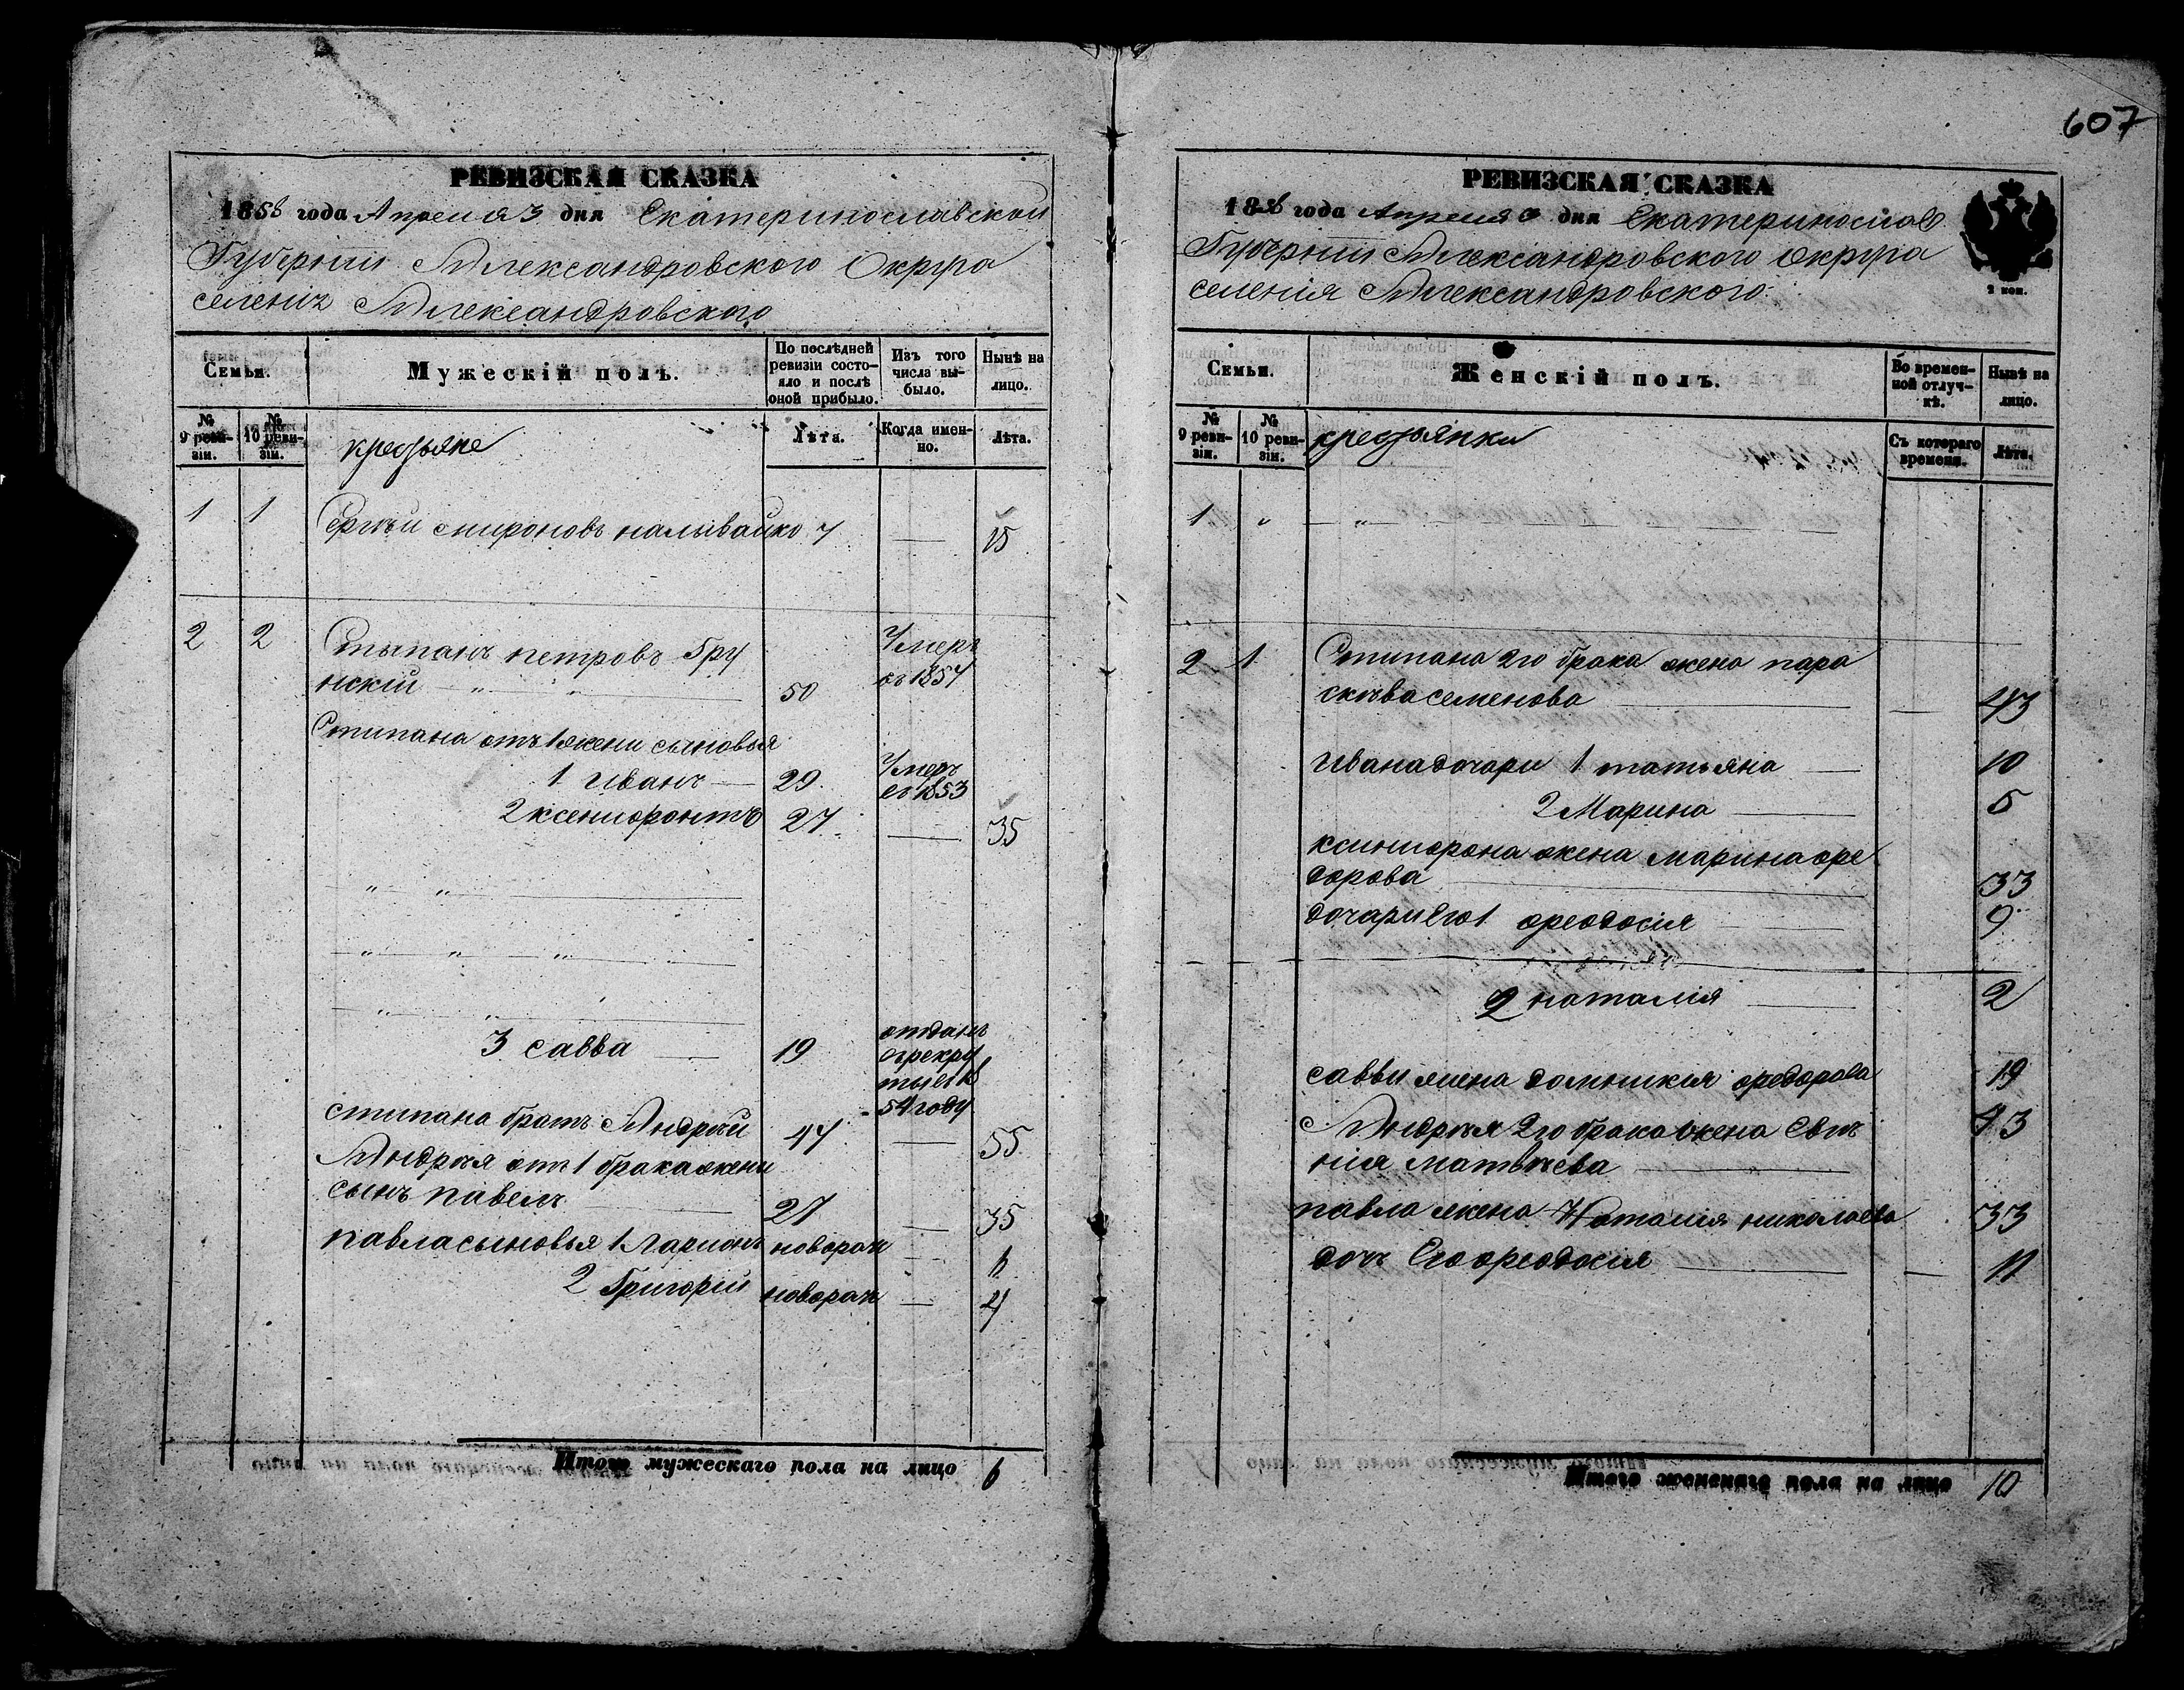 607
РЕВИЗСКАЯ СКАЗКА
1858 года Апреля 3 дня Екатеринославской
Губернии Александровского Округа
селения Александровского
Семьи.
Мужескій полъ.
По послѣдней ревизіи состо-яло и послѣ оной прибыло.
Изъ того числа вы-было.
Нынѣ на лицо.
№ 9 реви-зіи.
№ 10 реви-зіи.
крестьяне
Лѣта.
Когда имен-но.
Лѣта.
1 1 Сергѣй мироновъ наливайко 7 — 15
2 2 Стыпанъ петровъ Гру
нскій 50 Умеръ въ 1857
Стипана отъ 1 жени сыновья
1 Иванъ 29 Умеръ въ 1853
2 ксенофонтъ 27 — 35
3 савва 19 отданъ
54 году
стипана братъ Андрѣй 47 — 55
Андрѣя отъ 1 брака жени
сынъ павелъ 27 — 35
павла сыновья 1 Ларионъ новорож —
2 Григорій новорож — 4
Итого мужескаго пола на лицо 6
РЕВИЗСКАЯ СКАЗКА
1858 года Апреля 3 дня Екатеринослав
Губернии Александровского округа
селенія Александровского
2 коп.
Семьи.
Женскій полъ.
Во времен-ной отлуч-кѣ.
Нынѣ на лицо.
№ 9 реви-зіи.
№ 10 реви-зіи.
крестьянки
Съ котораго времени.
Лѣта.
1 „ — „ —
2 1 Стипана 2го брака жена пара
скѣва семенова — 43
Ивана дочари 1 татьяна — 10
2 Марина — 5
ксинифона жена марина фе
дорова 33
дочари Его 1 феодосія — 9
2 наталія — 2
савви жена домникия федорова 19
Андрѣя 2го брака жена Евге
нія матвѣева — 43
павла жена Наталія николаева 33
дочъ Его феодосія — 11
Итого женскаго пола на лицо 10